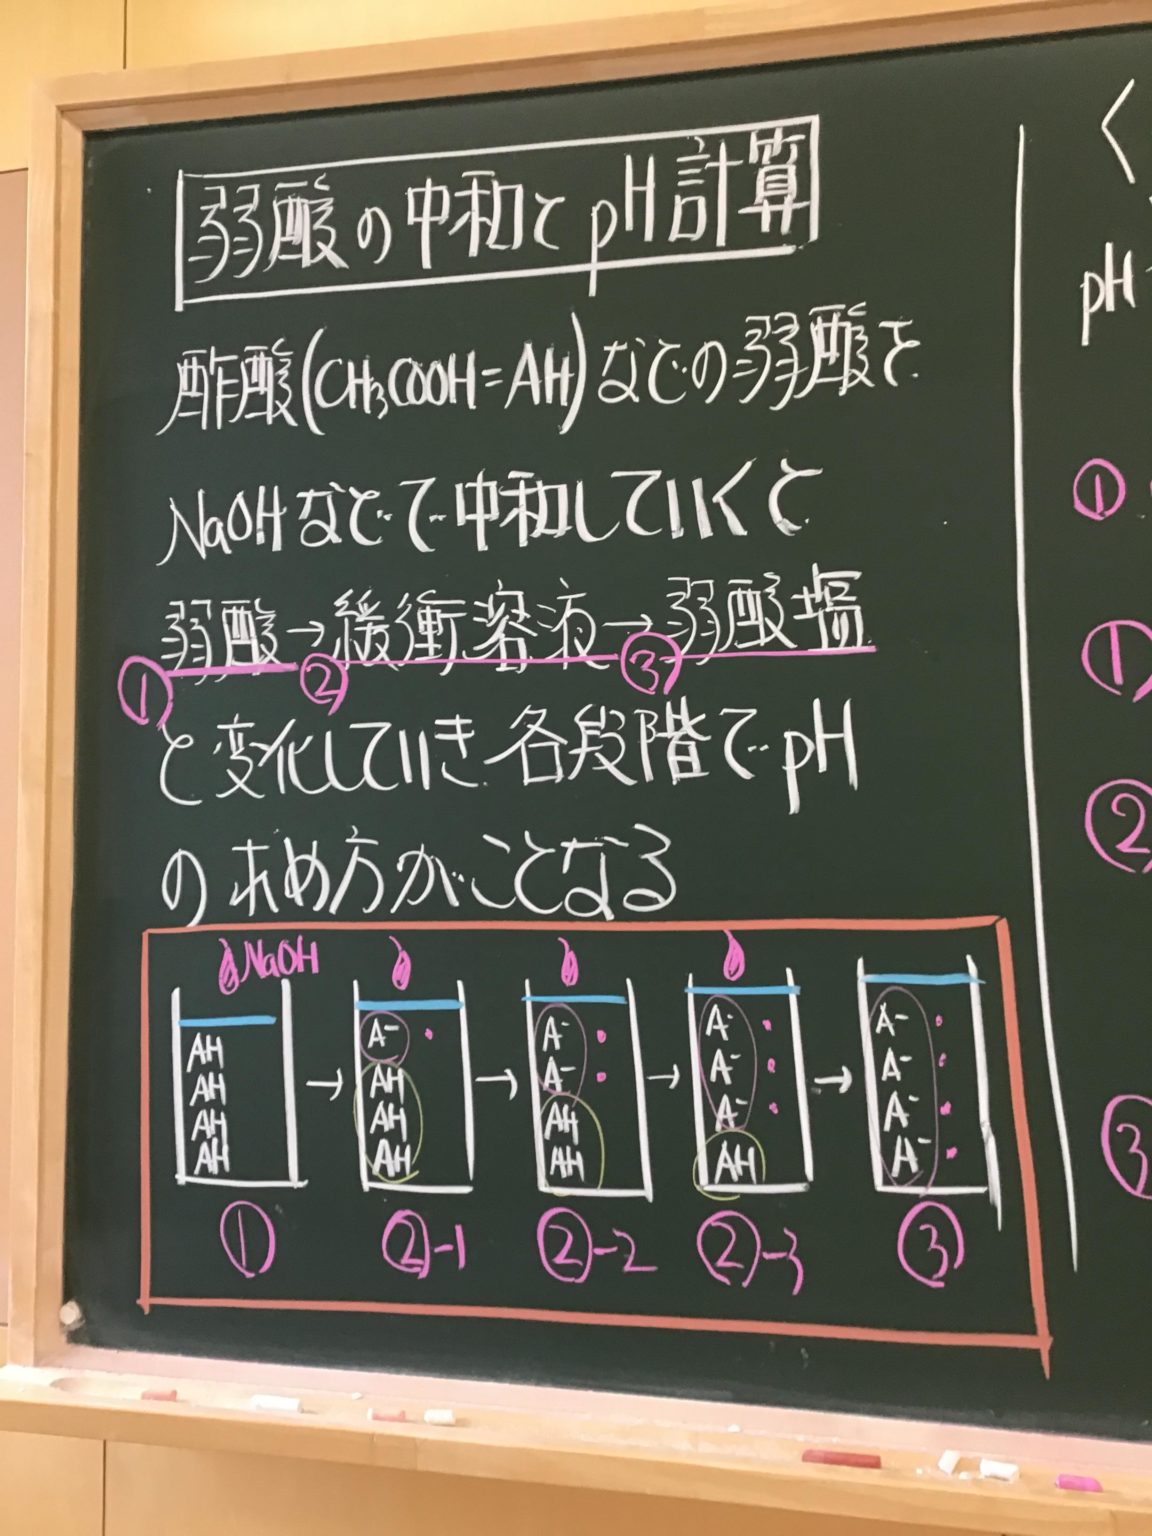 弱酸の中和とpH計算
酢酸(CH3COOH=AH)などの弱酸を
NaOHなどで中和していくと
弱酸→緩衝溶液→弱酸塩
① ② ③
と変化していき各段階でpH
の求め方がことなる
NaOH
AH
AH
AH
AH
①
→
A-
AH
AH
AH
②-1
→
A-
A-
AH
AH
②-2
→
A-
A-
A-
AH
②-3
→
A-
A-
A-
A-
③
pH
①
①
②
③